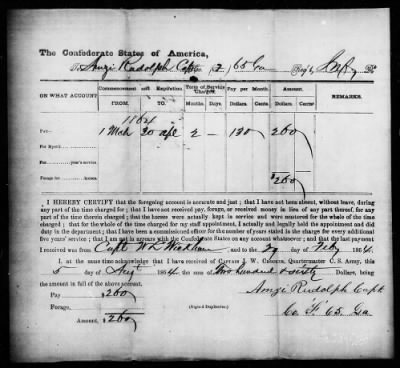 The Confederate States of America,
To Amzi Rudolph Capt Co. 65 Ga Reg't Inf'y Dr.
ON WHAT ACCOUNT
Commencement and Expiration
Term of Service Charged.
Pay per Month.
Amount.
REMARKS.
FROM. TO. Months. Days. Dollars. Cents. Dollars. Cents.
1864
Pay— 1 Mch 30 apl 2 — 130 260
For
For years' service.
Forage—for
$260
I HEREBY CERTIFY that the foregoing account is accurate and just; that I have not been absent, without leave, during
any part of the time charged for; that I have not received pay, forage, or received money in lieu of any part thereof, for any
part of the time therein charged; that the horses were actually kept in service and were mustered for the whole of the time
charged; that for the whole of the time charged for my staff appointment, I actually and legally held the appointment and did
duty in the department; that I have been a commissioned officer for the number of years stated in the charge for every additional
five years' service; that I am not in arrears with the Confederate States on any account whatsoever; and that the last payment I
received was from Capt and to the 29 day of Feby 1864.
I, at the same time acknowledge that I have received of CAPTAIN J. W. Quartermaster C. S. Army, this
5 day of Augt 1864, the sum of Two hundred & sixty Dollars, being
the amount in full of the above account.
Pay $260
Forage,
Amount, $260
(Signed Duplicates.)
Amzi Rudolph Capt
Co. "F" 65. Ga